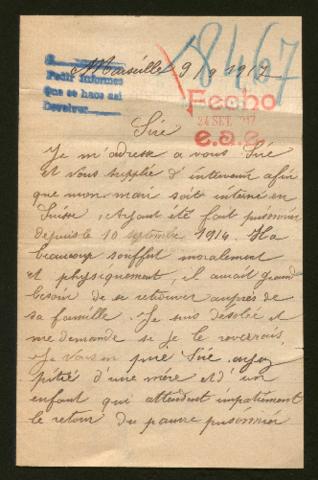 Pedir informes
que se haos asi
Devolver
8467
Marseille 9/9 1917
Fecho
24 SET. 917
e.a.e.
Sire
Je m'adresse a vous Sire
et vous supplie d'intervenir afin
que mon mari soit interné en
Suisse. Ayant été fait prisonnier
depuis le 10 septembre 1914. Il a
beaucoup souffert moralement
et physiquement, il aurait grand
besoin de se retrouver auprès de
sa famille. Je suis désolée et
me demande si je le reverrais,
Je vous en prie Sire ayez
pitié d'une mère et d'un
enfant qui attendent impatiemment
le retour du pauvre prisonnier